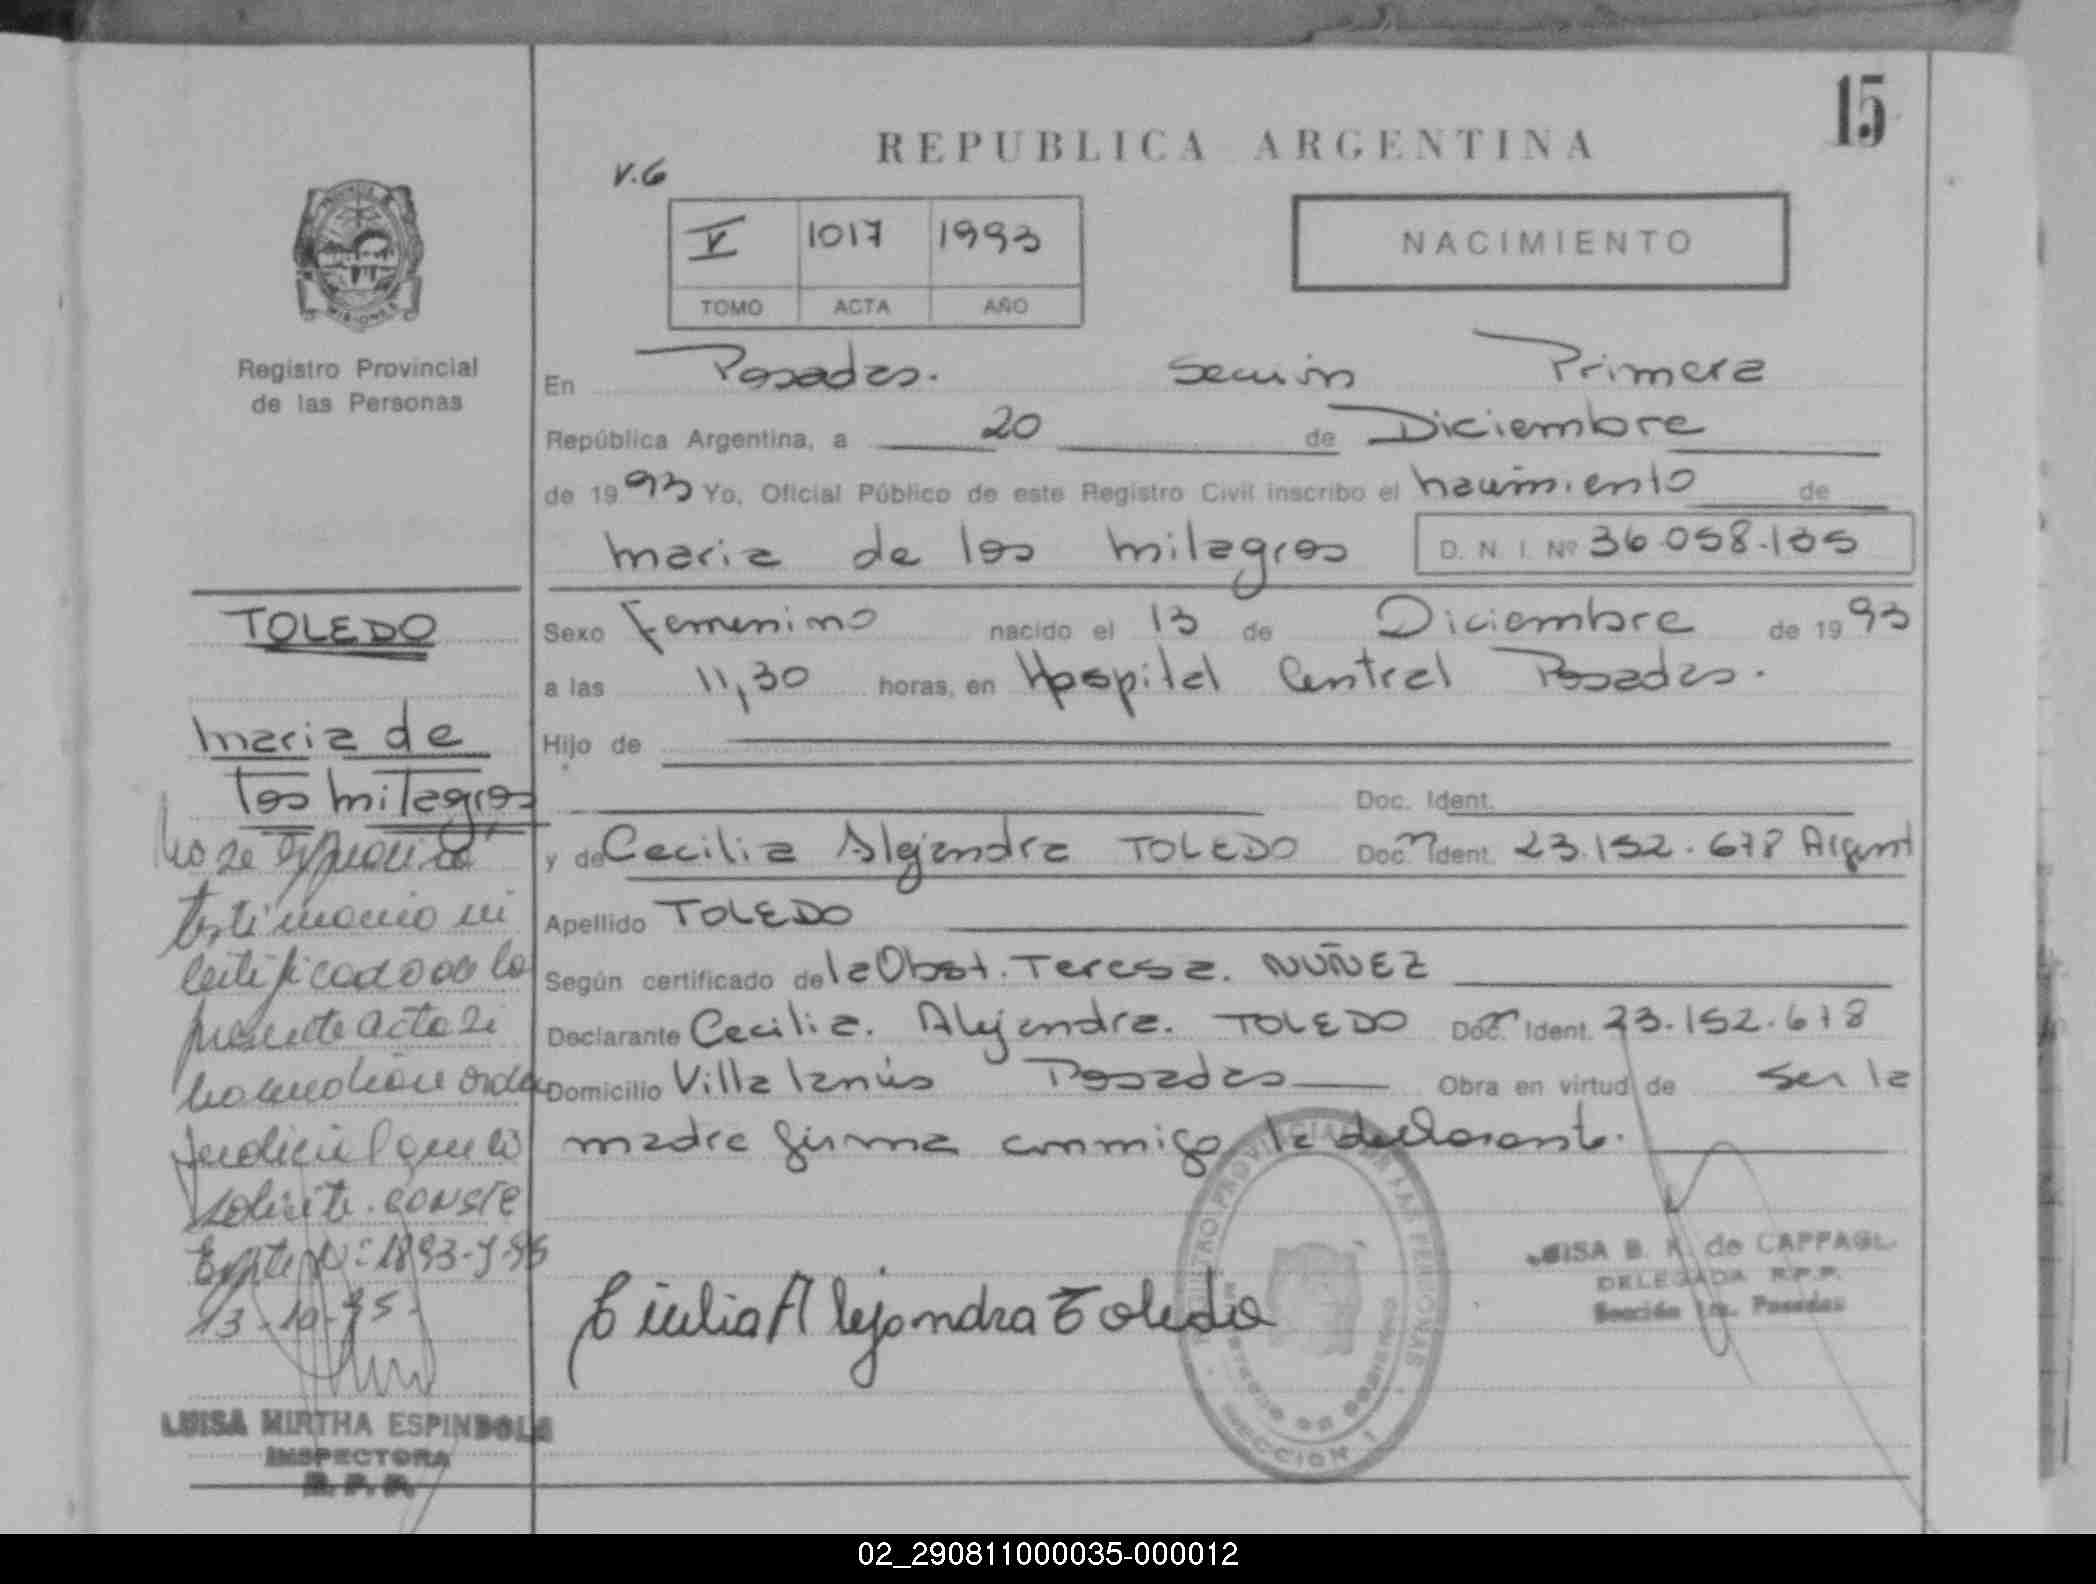 15
REPUBLICA ARGENTINA
V.6
V 1017 1993
TOMO ACTA AÑO
NACIMIENTO
MISIONES
Registro Provincial
de las Personas
En Posadas. Sección Primera
República Argentina, a 20 de Diciembre
de 1993 Yo, Oficial Público de este Registro Civil inscribo el nacimiento de
Maria de los Milagros D. N. I. Nº 36.058.135
TOLEDO
Sexo Femenino nacido el 13 de Diciembre de 1993
a las 11,30 horas, en Hospital Central Posadas.
Maria de
los Milagros
Hijo de
Doc. Ident.
y de Cecilia Alejandra TOLEDO Doc. Ident. 23.152.678 Argent
Apellido TOLEDO
Según certificado de la Obst. Teresa. NUÑEZ
Declarante Cecilia. Alejandra. TOLEDO Doc. Ident. 23.152.678
Domicilio Villa Lanús Posadas Obra en virtud de Ser la
madre firma conmigo la declarante.
No se
testimonio ni
certificado de la
presente acta si
no media orden
Judicial que lo
solicite. CONSTE
Expte Nº 1893-
13-10-95.
LUISA MIRTHA ESPINDOLA
INSPECTORA
R. P. P.
Cecilia Alejandra Toledo
REGISTRO PROVINCIAL DE LAS PERSONAS
SECCION 1
de CAPPAGLI
DELEGADA R.P.P.
Sección 1ra. Posadas
02_290811000035-000012